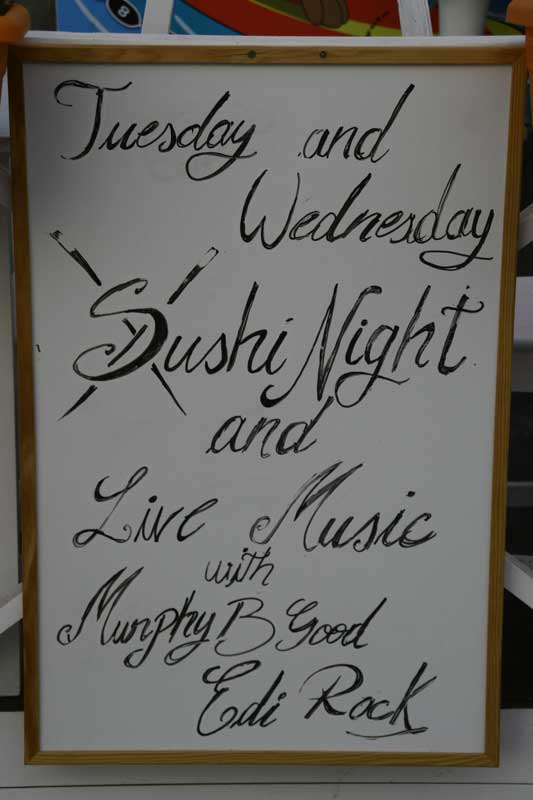 Tuesday and
Wednesday
Sushi Night
and
Live Music
with
Murphy B Good
Edi Rock
8